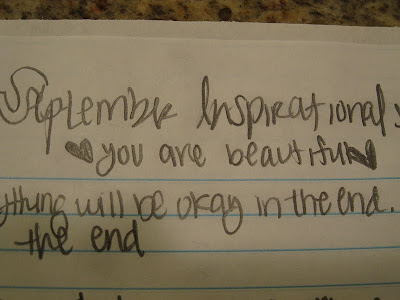 September Inspirational:
you are beautiful
ything will be okay in the end.
the end